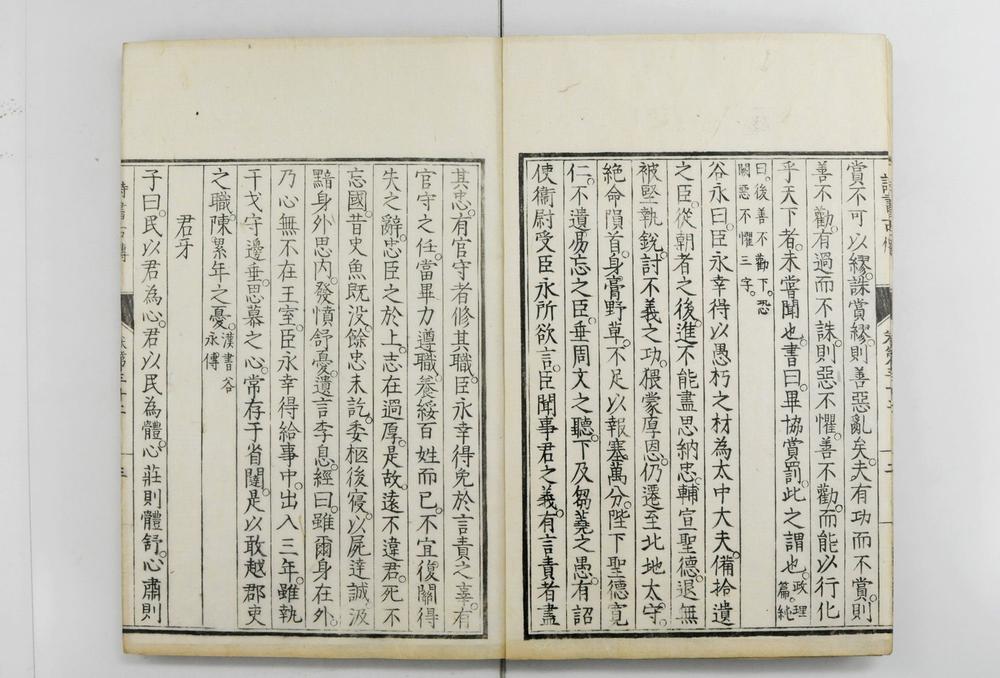 賞不可以繆。誅賞繆。則善惡亂矣。夫有功而不賞。則
善不勸。有過而不誅。則惡不懼。善不勸。而能以行化
乎天下者。未嘗聞也。書曰。畢協賞罰。此之謂也。政理
篇純
曰。後善不勸下。恐
闕惡不懼三字。
谷永曰。臣永幸得以愚朽之材為太中大夫。備拾遺
之臣。從朝者之後。進不能盡思納忠。輔宣聖德。退無
被堅執銳。討不義之功。猥蒙厚恩。仍遷至北地太守。
絕命隕首。身膏野草。不足以報塞萬分。陛下聖德寬
仁。不遺易忘之臣。垂周文之聽。下及芻蕘之愚。有詔
使衞尉受臣永所欲言。臣聞事君之義。有言責者盡
其忠。有官守者修其職。臣永幸得免於言責之辜。有
官守之任。當畢力遵職。養綏百姓而已。不宜復關得
失之辭。忠臣之於上。志在過厚。是故遠不違君。死不
忘國。昔史魚既没。餘忠未訖。委柩後寢。以屍達誠。汲
黯身外思內。發憤舒憂。遺言李息。經曰。雖爾身在外。
乃心無不在王室。臣永幸得給事中。出入三年。雖執
干戈守邊垂。思慕之心。常存于省闥。是以敢越郡吏
之職。陳累年之憂。漢書谷
永傳
君牙
子曰。民以君為心。君以民為體。心莊則體舒。心肅則
詩書古傳